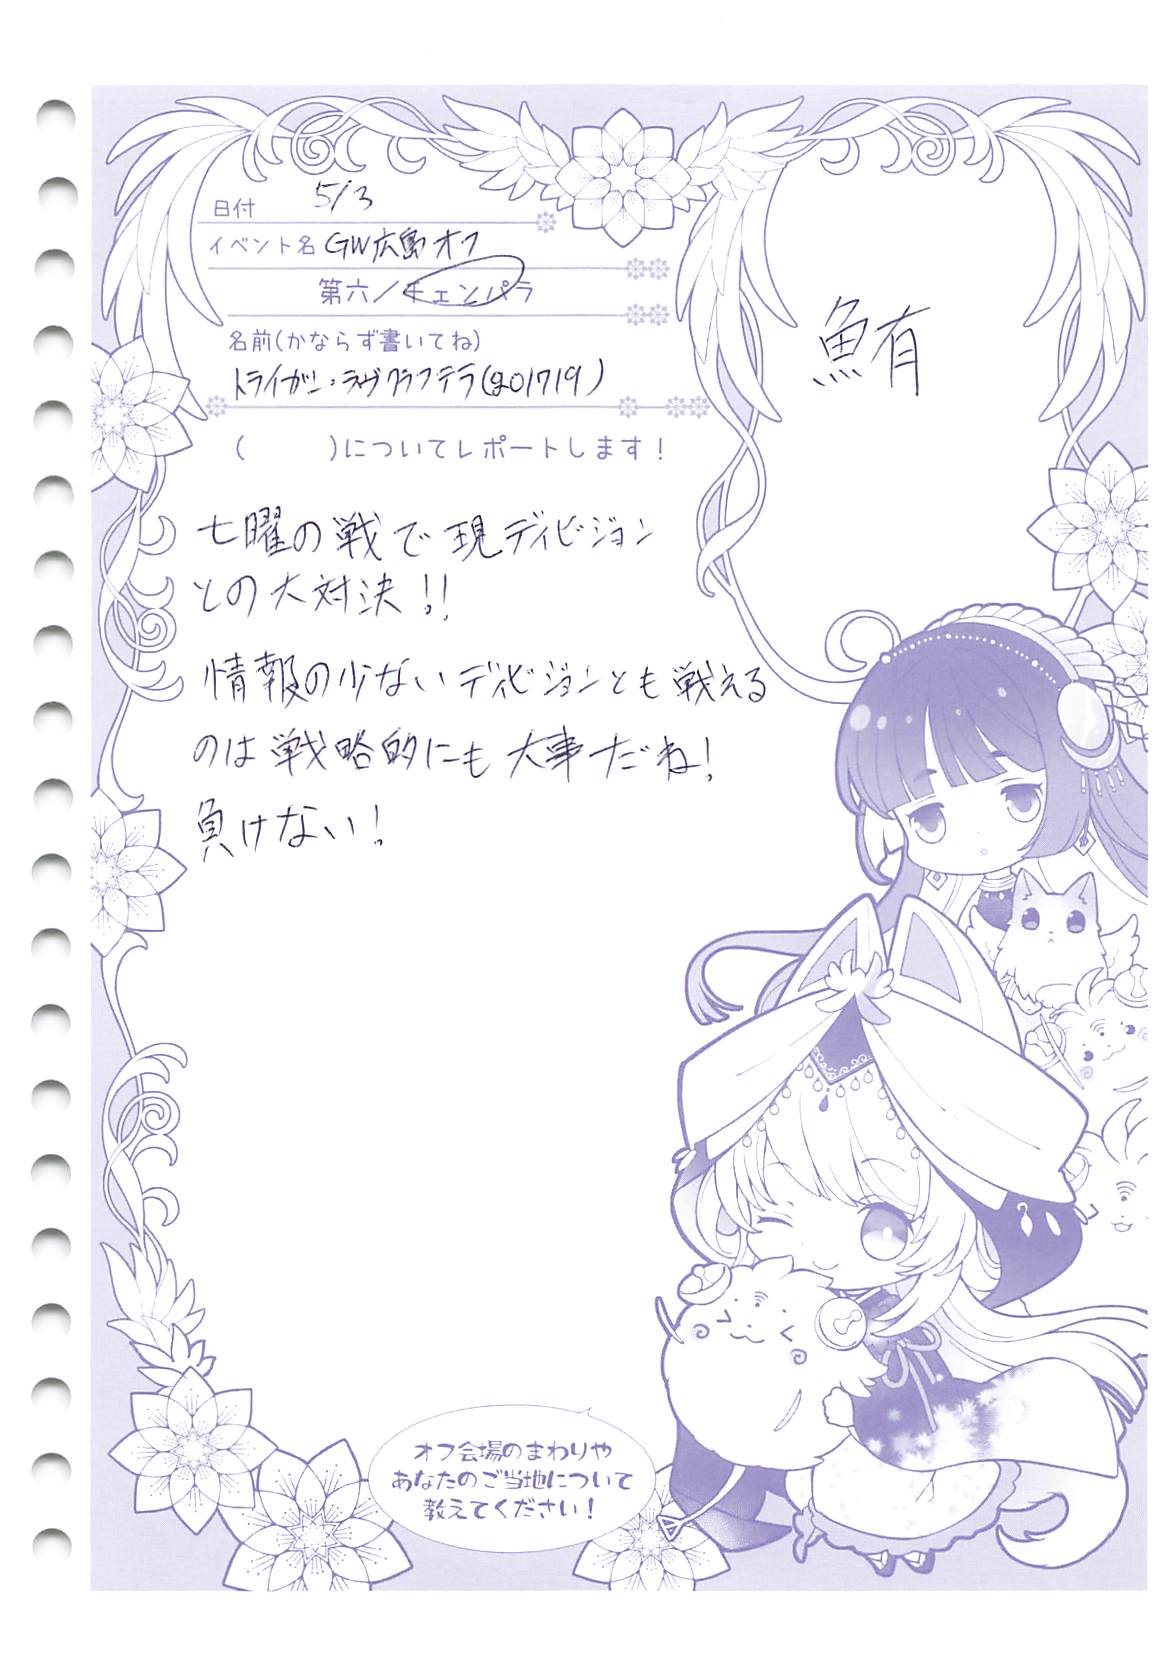 日付 5/3
イベント名 GW広島オフ
第六/チェンパラ
名前(かならず書いてね)
トライガン・ラヴクラフテラ(g01719)
(　　　)についてレポートします!
鮪
七曜の戦で現ディビジョン
との大対決!!
情報の少ないディビジョンとも戦える
のは戦略的にも大事だね!
負けない!
オフ会場のまわりや
あなたのご当地について
教えてください!